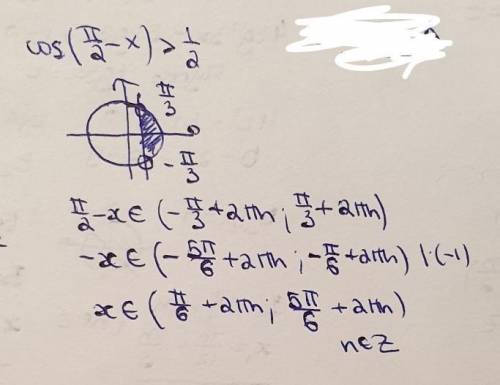 cos(π/2 - x) > 1/2
π/3
0
-π/3
π/2 - x ∈ (-π/3 + 2πn ; π/3 + 2πn)
-x ∈ (-5π/6 + 2πn ; -π/6 + 2πn) | · (-1)
x ∈ (π/6 + 2πn ; 5π/6 + 2πn)
n ∈ Z